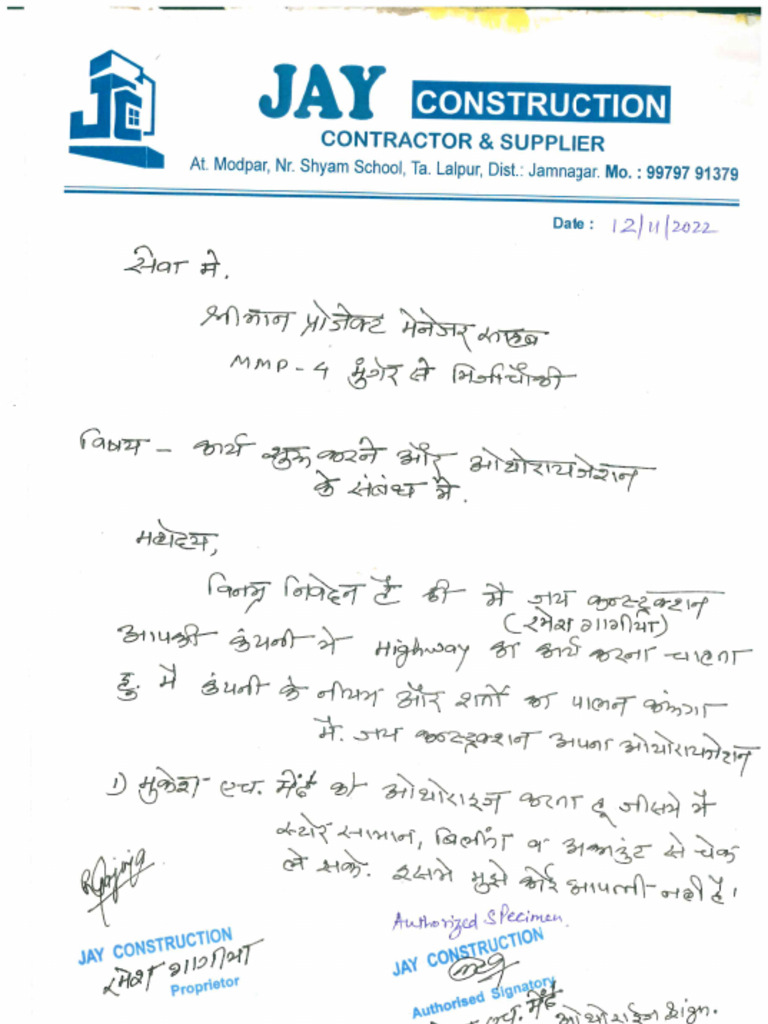 JC
JAY CONSTRUCTION
CONTRACTOR & SUPPLIER
At. Modpar, Nr. Shyam School, Ta. Lalpur, Dist.: Jamnagar. Mo. : 99797 91379
Date : 12/11/2022
सेवा मे.
श्रीमान प्रोजेक्ट मेनेजर साहब
MMP - 4 मुंगेर से मिर्जाचौकी
विषय - कार्य शुरू करने और ओथोरायजेशन
के संबंध मे.
महोदय,
विनम्र निवेदन है की मै जय कन्स्ट्रक्शन
(रमेश गागीया)
आपकी कंपनी मे Highway का कार्य करना चाहता
हु. मै कंपनी के नीयम और शर्तो का पालन करूंगा
मै. जय कन्स्ट्रक्शन अपना ओथोरायजेशन
1) मुकेश एच. को ओथोराइज करता हू जीसमे मै
स्टोर सामान, बिलींग व अकाउंट से चेक
ले सके. इसमे मुझे कोई आपत्ती नही है।
Authorized Specimen.
JAY CONSTRUCTION
रमेश गागीया
Proprietor
JAY CONSTRUCTION
Authorised Signatory
एच. ओथोराईज sign.